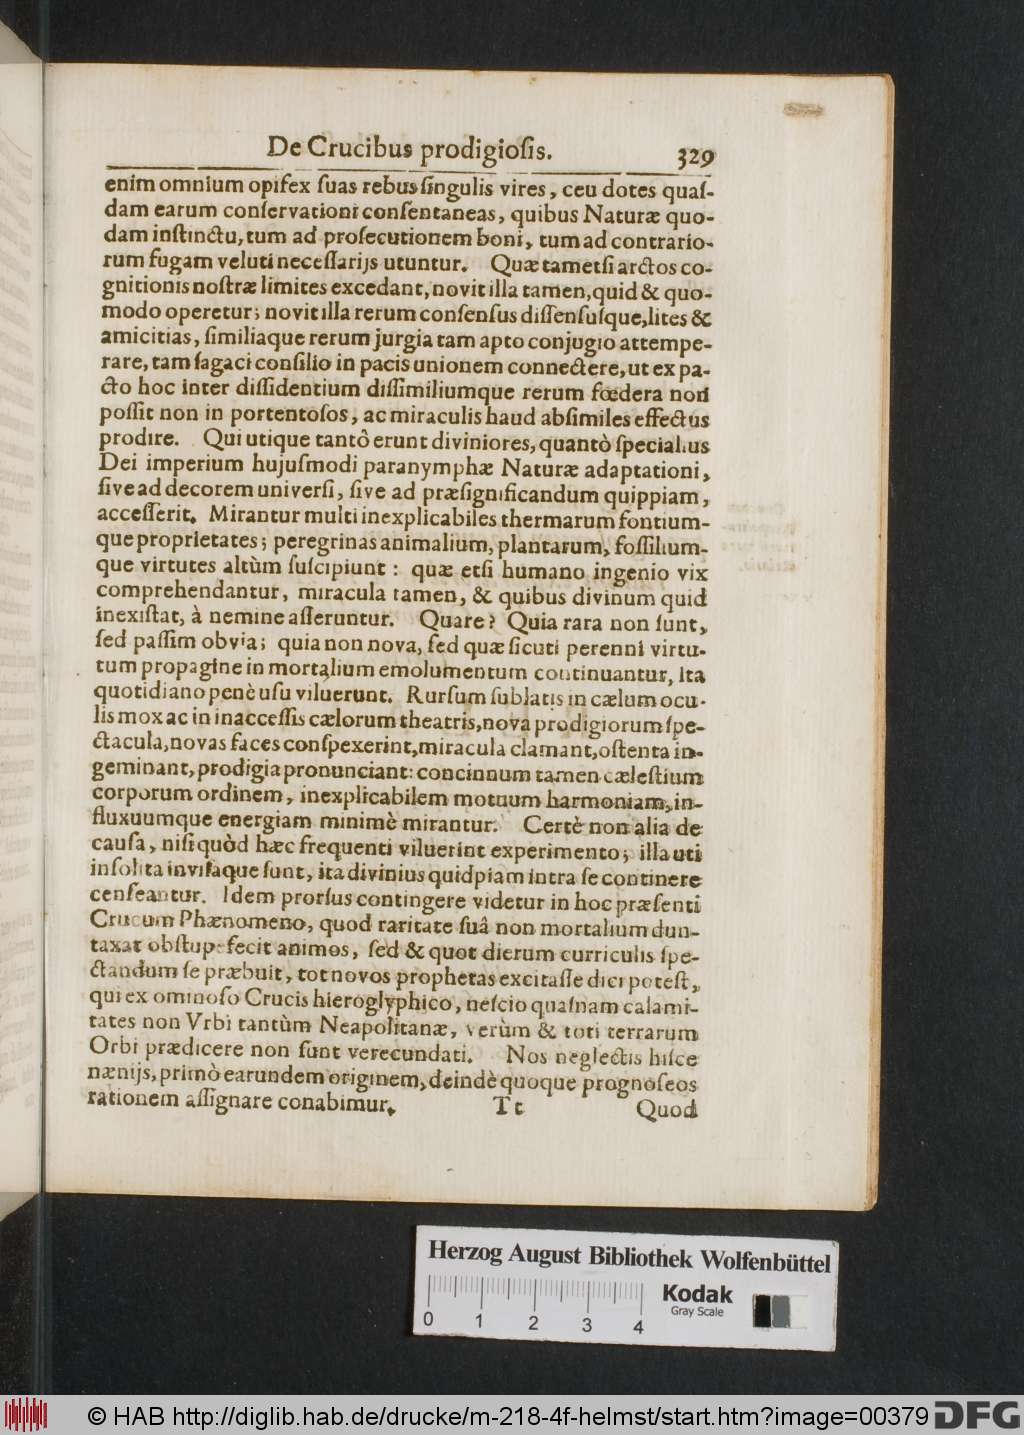 De Crucibus prodigiosis. 329
enim omnium opifex ſuas rebus ſingulis vires, ceu dotes quaſ-
dam earum conſervationi conſentaneas, quibus Naturæ quo-
dam inſtinctu, tum ad proſecutionem boni, tum ad contrario-
rum fugam veluti neceſſarijs utuntur. Quæ tametſi arctos co-
gnitionis noſtræ limites excedant, novit illa tamen, quid & quo-
modo operetur; novit illa rerum conſenſus diſſenſuſque, lites &
amicitias, ſimiliaque rerum jurgia tam apto conjugio attempe-
rare, tam ſagaci conſilio in pacis unionem connectere, ut ex pa-
cto hoc inter diſſidentium diſſimiliumque rerum fœdera non
poſſit non in portentoſos, ac miraculis haud abſimiles effectus
prodire. Qui utique tantô erunt diviniores, quantò ſpecialius
Dei imperium hujuſmodi paranymphæ Naturæ adaptationi,
ſive ad decorem univerſi, ſive ad præſignificandum quippiam,
acceſſerit. Mirantur multi inexplicabiles thermarum fontium-
que proprietates; peregrinas animalium, plantarum, foſſilium-
que virtutes altùm ſuſcipiunt: quæ etſi humano ingenio vix
comprehendantur, miracula tamen, & quibus divinum quid
inexiſtat, à nemine aſſeruntur. Quare? Quia rara non ſunt,
ſed paſſim obvia; quia non nova, ſed quæ ſicuti perenni virtu-
tum propagine in mortalium emolumentum continuantur, ita
quotidiano penè uſu viluerunt. Rurſum ſublatis in cælum ocu-
lis mox ac in inacceſſis cælorum theatris, nova prodigiorum ſpe-
ctacula, novas faces conſpexerint, miracula clamant, oſtenta in-
geminant, prodigia pronunciant: concinnum tamen cæleſtium
corporum ordinem, inexplicabilem motuum harmoniam, in-
fluxuumque energiam minimè mirantur. Certè non alia de
cauſa, niſi quòd hæc frequenti viluerint experimento; illa uti
inſolita inviſaque ſunt, ita divinius quidpiam intra ſe continere
cenſeantur. Idem prorſus contingere videtur in hoc præſenti
Crucum Phænomeno, quod raritate ſuâ non mortalium dun-
taxat obſtupefecit animos, ſed & quot dierum curriculis ſpe-
ctandum ſe præbuit, tot novos prophetas excitaſſe dici poteſt,
qui ex ominoſo Crucis hieroglyphico, neſcio quaſnam calami-
tates non Vrbi tantùm Neapolitanæ, verùm & toti terrarum
Orbi prædicere non ſunt verecundati. Nos neglectis hiſce
nænijs, primò earundem originem, deindè quoque prognoſeos
rationem aſſignare conabimur.
Tt Quod
Herzog August Bibliothek Wolfenbüttel
0 1 2 3 4
Kodak
Gray Scale
© HAB http://diglib.hab.de/drucke/m-218-4f-helmst/start.htm?image=00379 DFG